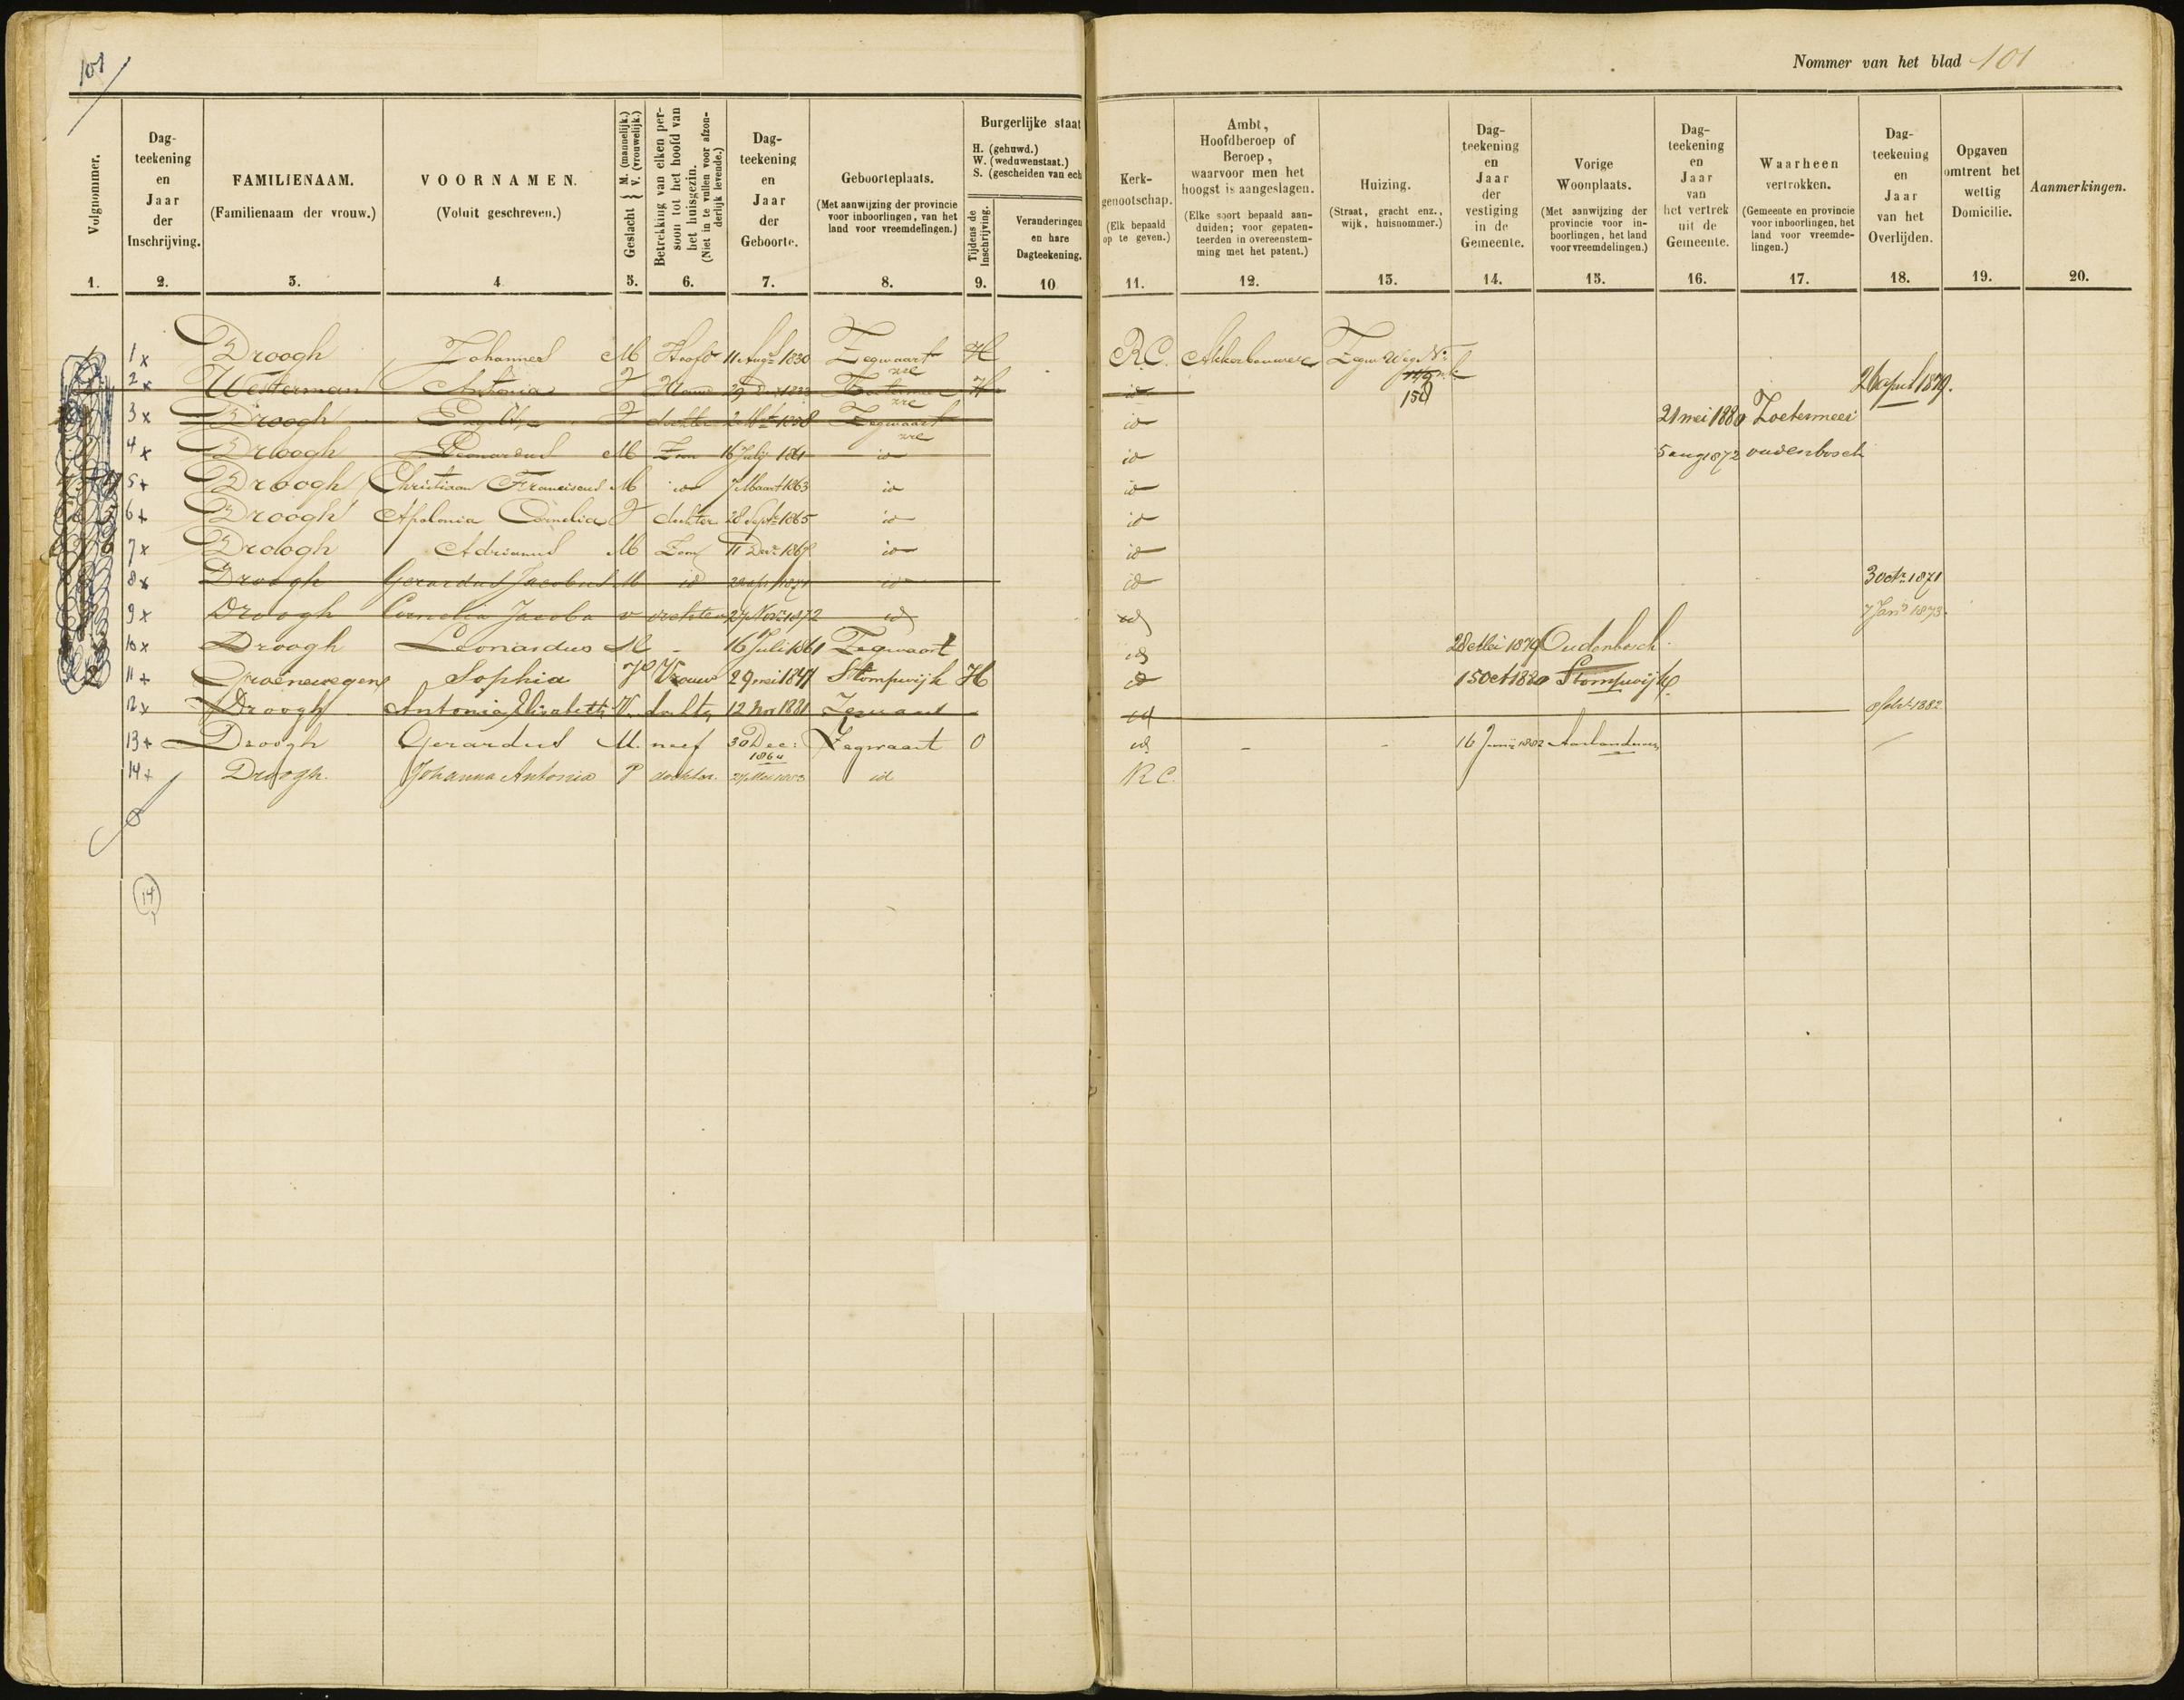 101
Nommer van het blad 101
Volgnommer.
1.
Dag-
teekening
en
Jaar
der
Inschrijving.
2.
FAMILIENAAM.
(Familienaam der vrouw.)
3.
VOORNAMEN.
(Voluit geschreven.)
4
Geslacht { M. (mannelijk.) V. (vrouwelijk.)
5.
Betrekking van elken per-
soon tot het hoofd van
het huisgezin.
(Niet in te vullen voor afzon-
derlijk levende.)
6.
Dag-
teekening
en
Jaar
der
Geboorte.
7.
Geboorteplaats.
(Met aanwijzing der provincie
voor inboorlingen, van het
land voor vreemdelingen.)
8.
Burgerlijke staat
H. (gehuwd.)
W. (weduwenstaat.)
S. (gescheiden van ech
Tijdens de
Inschrijving.
9.
Veranderingen
en hare
Dagteekening.
10
Kerk-
genootschap.
(Elk bepaald
op te geven.)
11.
Ambt,
Hoofdberoep of
Beroep,
waarvoor men het
hoogst is aangeslagen.
(Elke soort bepaald aan-
duiden; voor gepaten-
teerden in overeenstem-
ming met het patent.)
12.
Huizing.
(Straat, gracht enz.,
wijk, huisnommer.)
13.
Dag-
teekening
en
Jaar
der
vestiging
in de
Gemeente.
14.
Vorige
Woonplaats.
(Met aanwijzing der
provincie voor in-
boorlingen, het land
voor vreemdelingen.)
15.
Dag-
teekening
en
Jaar
van
het vertrek
uit de
Gemeente.
16.
Waarheen
vertrokken.
(Gemeente en provincie
voor inboorlingen, het
land voor vreemde-
lingen.)
17.
Dag-
teekening
en
Jaar
van het
Overlijden.
18.
Opgaven
omtrent het
wettig
Domicilie.
19.
Aanmerkingen.
20.
1 x Droogh Johannes M Hoofd 11 Augs 1830 Zegwaart H R.C. Akkerbouwer Zegw. Weg No
2 x Westerman Antonia V H 150 26 april 1879.
3 x Droogh V dochter 1858 Zegwaart id 21 mei 1880 Zoetermeer
4 x Droogh Leonardus M Zoon 16 July 1861 id id 5 aug 1872 oudenbosch
5 + Droogh Christiaan Franciscus M id 7 Maart 1863 id id
6 + Droogh Apolonia Cornelia V dochter 28 Septr 1865 id id
7 x Droogh Adrianus M Zoon 11 Decr id id
8 x Droogh Gerardus Jacobus M id 1871 id id 3 octr 1871
9 x Droogh Cornelia Jacoba v dochter 27 Novr 1872 id id 7 Jan 1873.
10 x Droogh Leonardus M - 16 Juli 1861 Zegwaart id 28 Mei 1879 Oudenbosch
11 + Groenewegen Sophia V Vrouw 29 mei 1847 Stompwijk H id 15 Oct 1880 Stompwijk
12 x Droogh Antonia Elisabeth V. dochter 12 Nov 1881 Zegwaart id 1882
13 + Droogh Gerardus M. neef 30 Dec: Zegwaart O id - - 16 Junij 1882
1864
14 + Droogh. Johanna Antonia V dochter. id R.C.
14